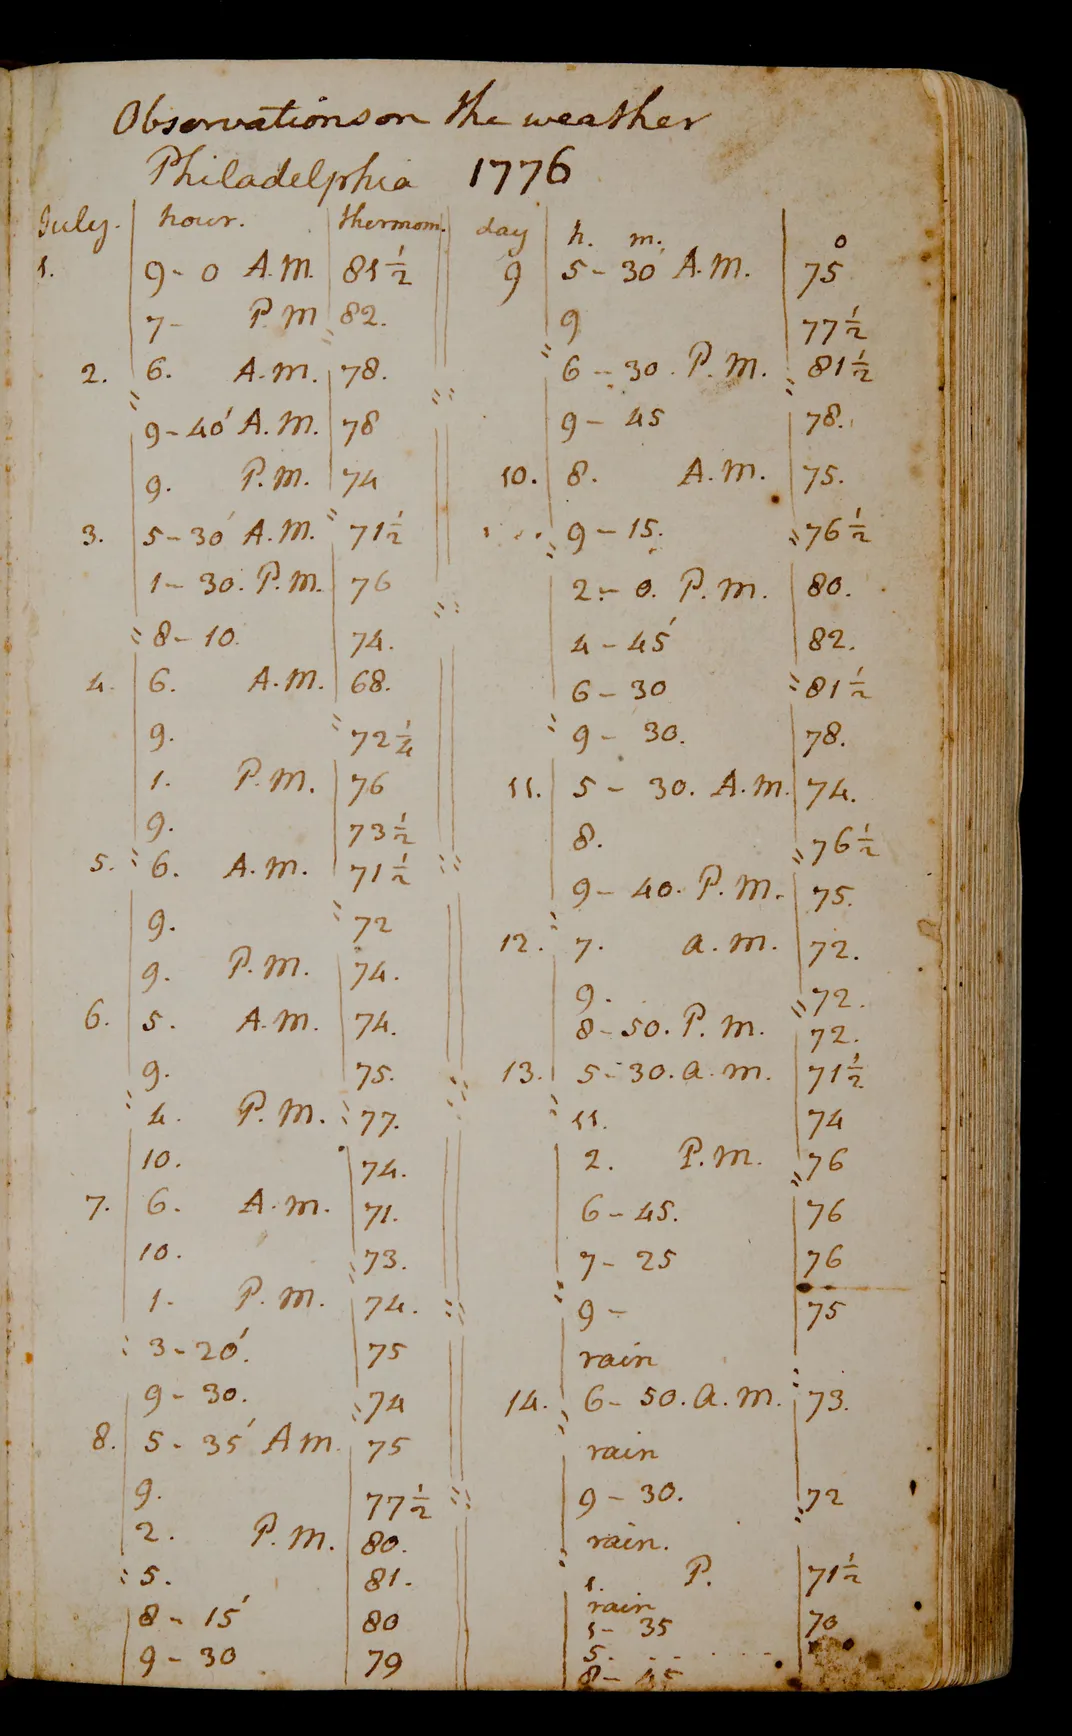 Observations on the weather
Philadelphia 1776
July. hour. thermom.
1. 9-0 A.M. 81½
7- P.M 82.
2. 6. A.M. 78.
9-40' A.M. 78
9. P.M. 74
3. 5-30' A.M. 71½
1-30. P.M. 76
8-10. 74.
4. 6. A.M. 68.
9. 72¼
1. P.M. 76
9. 73½
5. 6. A.M. 71½
9. 72
9. P.M. 74.
6. 5. A.M. 74.
9. 75.
4. P.M. 77.
10. 74.
7. 6. A.M. 71.
10. 73.
1. P.M. 74.
3-20'. 75
9-30. 74
8. 5-35' A.M. 75
9. 77½
2. P.M. 80.
5. 81.
8-15' 80
9-30 79
day h. m. o
9 5-30' A.M. 75
9 77½
6-30. P.M. 81½
9-45 78.
10. 8. A.M. 75.
9-15. 76½
2-0. P.M. 80.
4-45' 82.
6-30 81½
9-30. 78.
11. 5-30. A.M. 74.
8. 76½
9-40. P.M. 75.
12. 7. a.m. 72.
9. 72.
8-50. P.M. 72.
13. 5-30. a.m. 71½
11. 74
2. P.M. 76
6-45. 76
7-25 76
9- 75
rain
14. 6-50. a.m. 73.
rain
9-30. 72
rain.
1. P. 71½
rain
1-35 70
5.
8-45